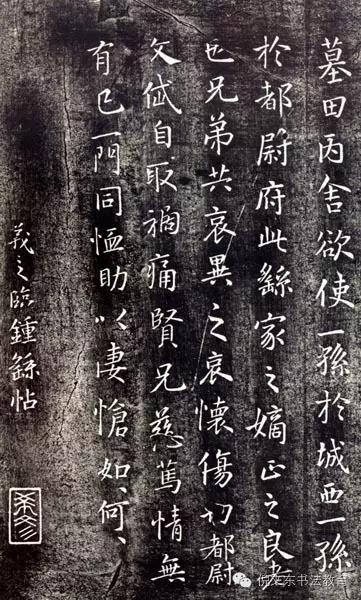 墓田丙舍欲使一孫於城西一孫
於都尉府此繇家之嫡正之良者
也兄弟共哀異之哀懷傷切都尉
文岱自取禍痛賢兄慈篤情無
有已一門同恤助以悽愴如何、
羲之臨鍾繇帖